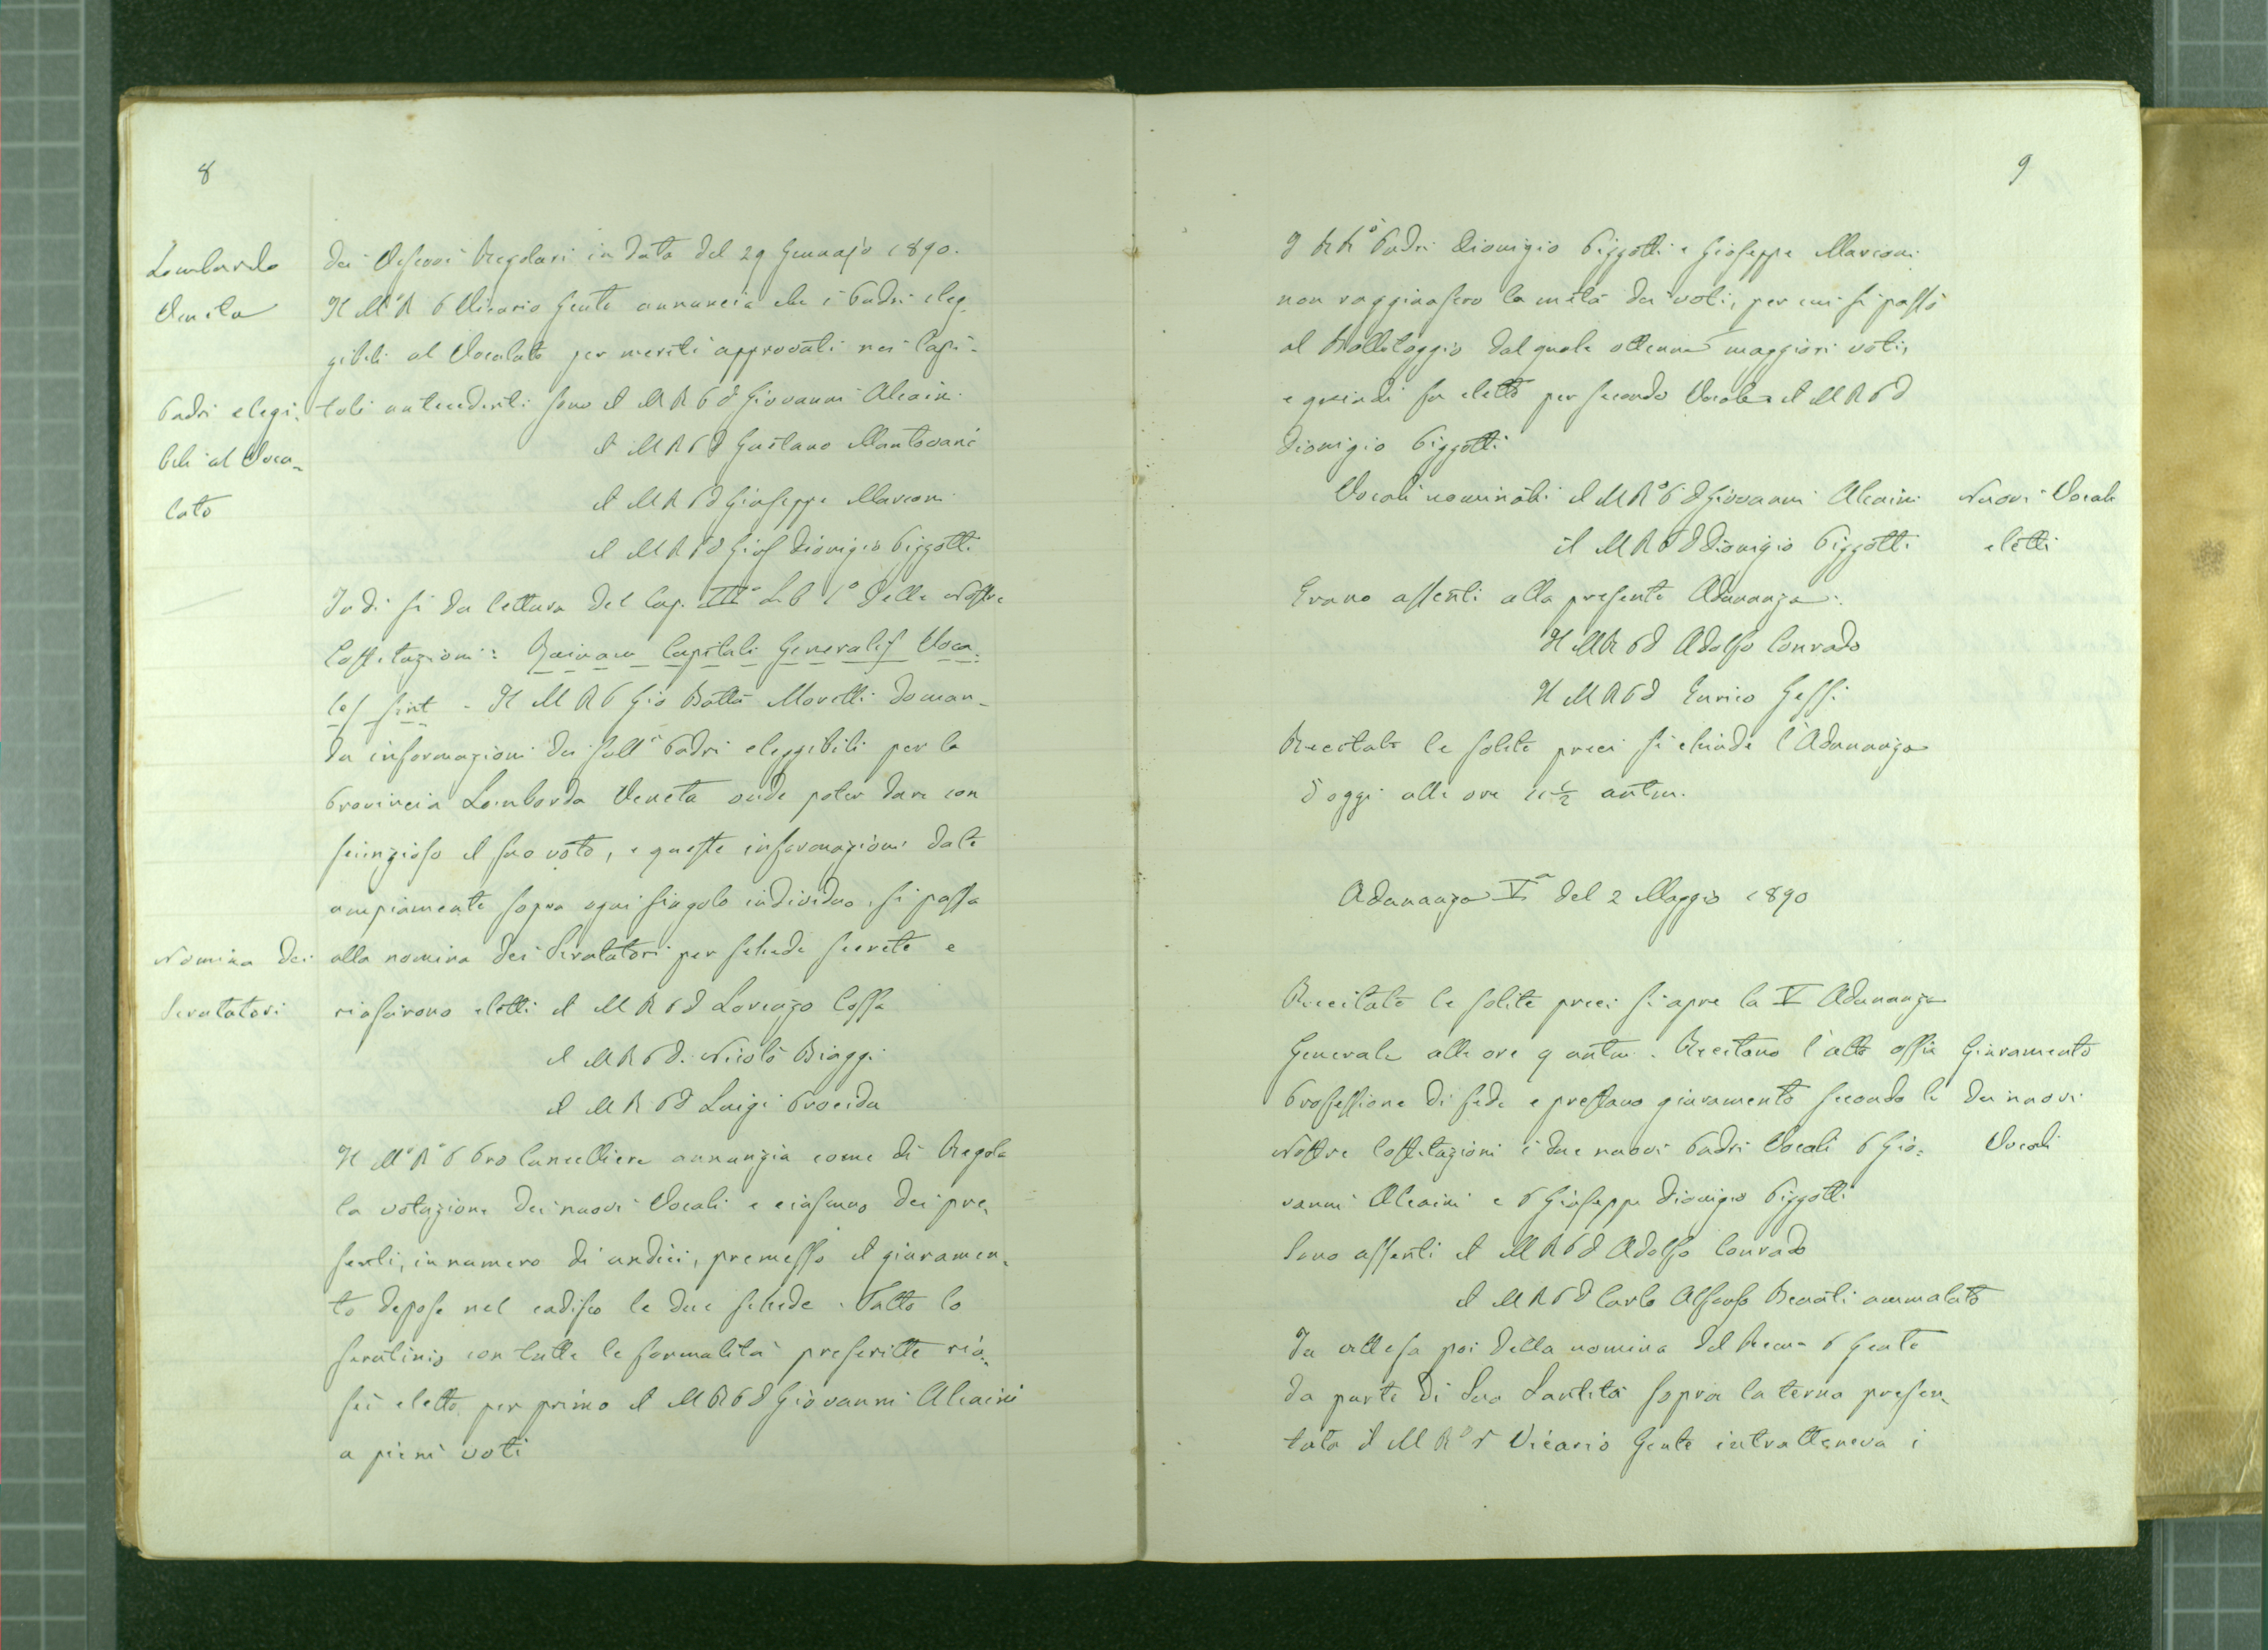 8
Lombardo
Veneta
dei Vescovi Regolari in data del 29 Gennajo 1890.
Il M.R. P Vicario Gente annuncia che i Padri eleg-
gibili al Vocalato per meriti approvati nei Capi-
Padri elegi-
bili al Voca-
lato
toli antecedenti sono il M R P D Giovanni Alcain.
il M R P D Gustavo Mantovani
il M R P D Giuseppe Marconi
il M R P D Gios Dionigio Pizzotti
Indi si da lettura del Cap. III° Lib 1° delle Nostre
Costituzioni: Capituli Generalis Voca-
les sint - Il M R P Gio Batta Morelli doman-
da informazioni dei sull i Padri eleggibili per la
Provincia Lombarda Veneta onde poter dare con
scienzioso il suo voto, e queste informazioni date
ampiamente sopra ogni singolo individuo, si passa
Nomina dei
Scrutatori
alla nomina dei Scrutatori per schede secrete e
riuscirono eletti il M R P D Lorenzo Cossa
il M R P D. Nicolò Biaggi
il M R P D Luigi Procida
Il M° R° P Pro Cancelliere annunzia come di Regola
la votazione dei nuovi Vocali e ciascuno dei pre-
senti, in numero di undici, premesso il giuramen-
to depose nel cadisco le due schede. Fatto lo
scrutinio con tutte le formalità prescritte riu-
scì eletto per primo il M R P D Giovanni Alcaini
a pieni voti
9
I R R° Padri Dionigio Pizzotti e Gioseppe Marconi
non raggiunsero la metà dei voti, per cui si passò
al Ballotaggio dal quale ottenne maggiori voti,
e quindi fu eletto per secondo Vocale il M R P D
Dionigio Pizzotti
Vocali nominati il M R° P D Giovanni Alcaini
il M R P D Dionigio Pizzotti
Nuovi Vocali
eletti
Erano assenti alla presente Adunanza:
Il M R P D Adolfo Conrado
Il M R P D Enrico Gessi
Recitate le solite preci si chiude l'Adunanza
d'oggi alle ore 11 1/2 antm.
Adunanza Vª del 2 Maggio 1890
Recitate le solite preci si apre la V Adunanza
Generale alle ore 9 antm. Recitano l'atto
Professione di fede e prestano giuramento secondo le
Nostre Costituzioni i due nuovi Padri Vocali P Gio-
vanni Alcaini e P Giuseppe Dionigio Pizzotti
Giuramento
dei nuovi
Vocali
Sono assenti il M R P D Adolfo Conrado
il M R P D Carlo Alfonso Benati ammalato
In attesa poi della nomina del Revmo P Gente
da parte di Sua Santità sopra la terna presen-
tata il M R° P Vicario Gente intratteneva i